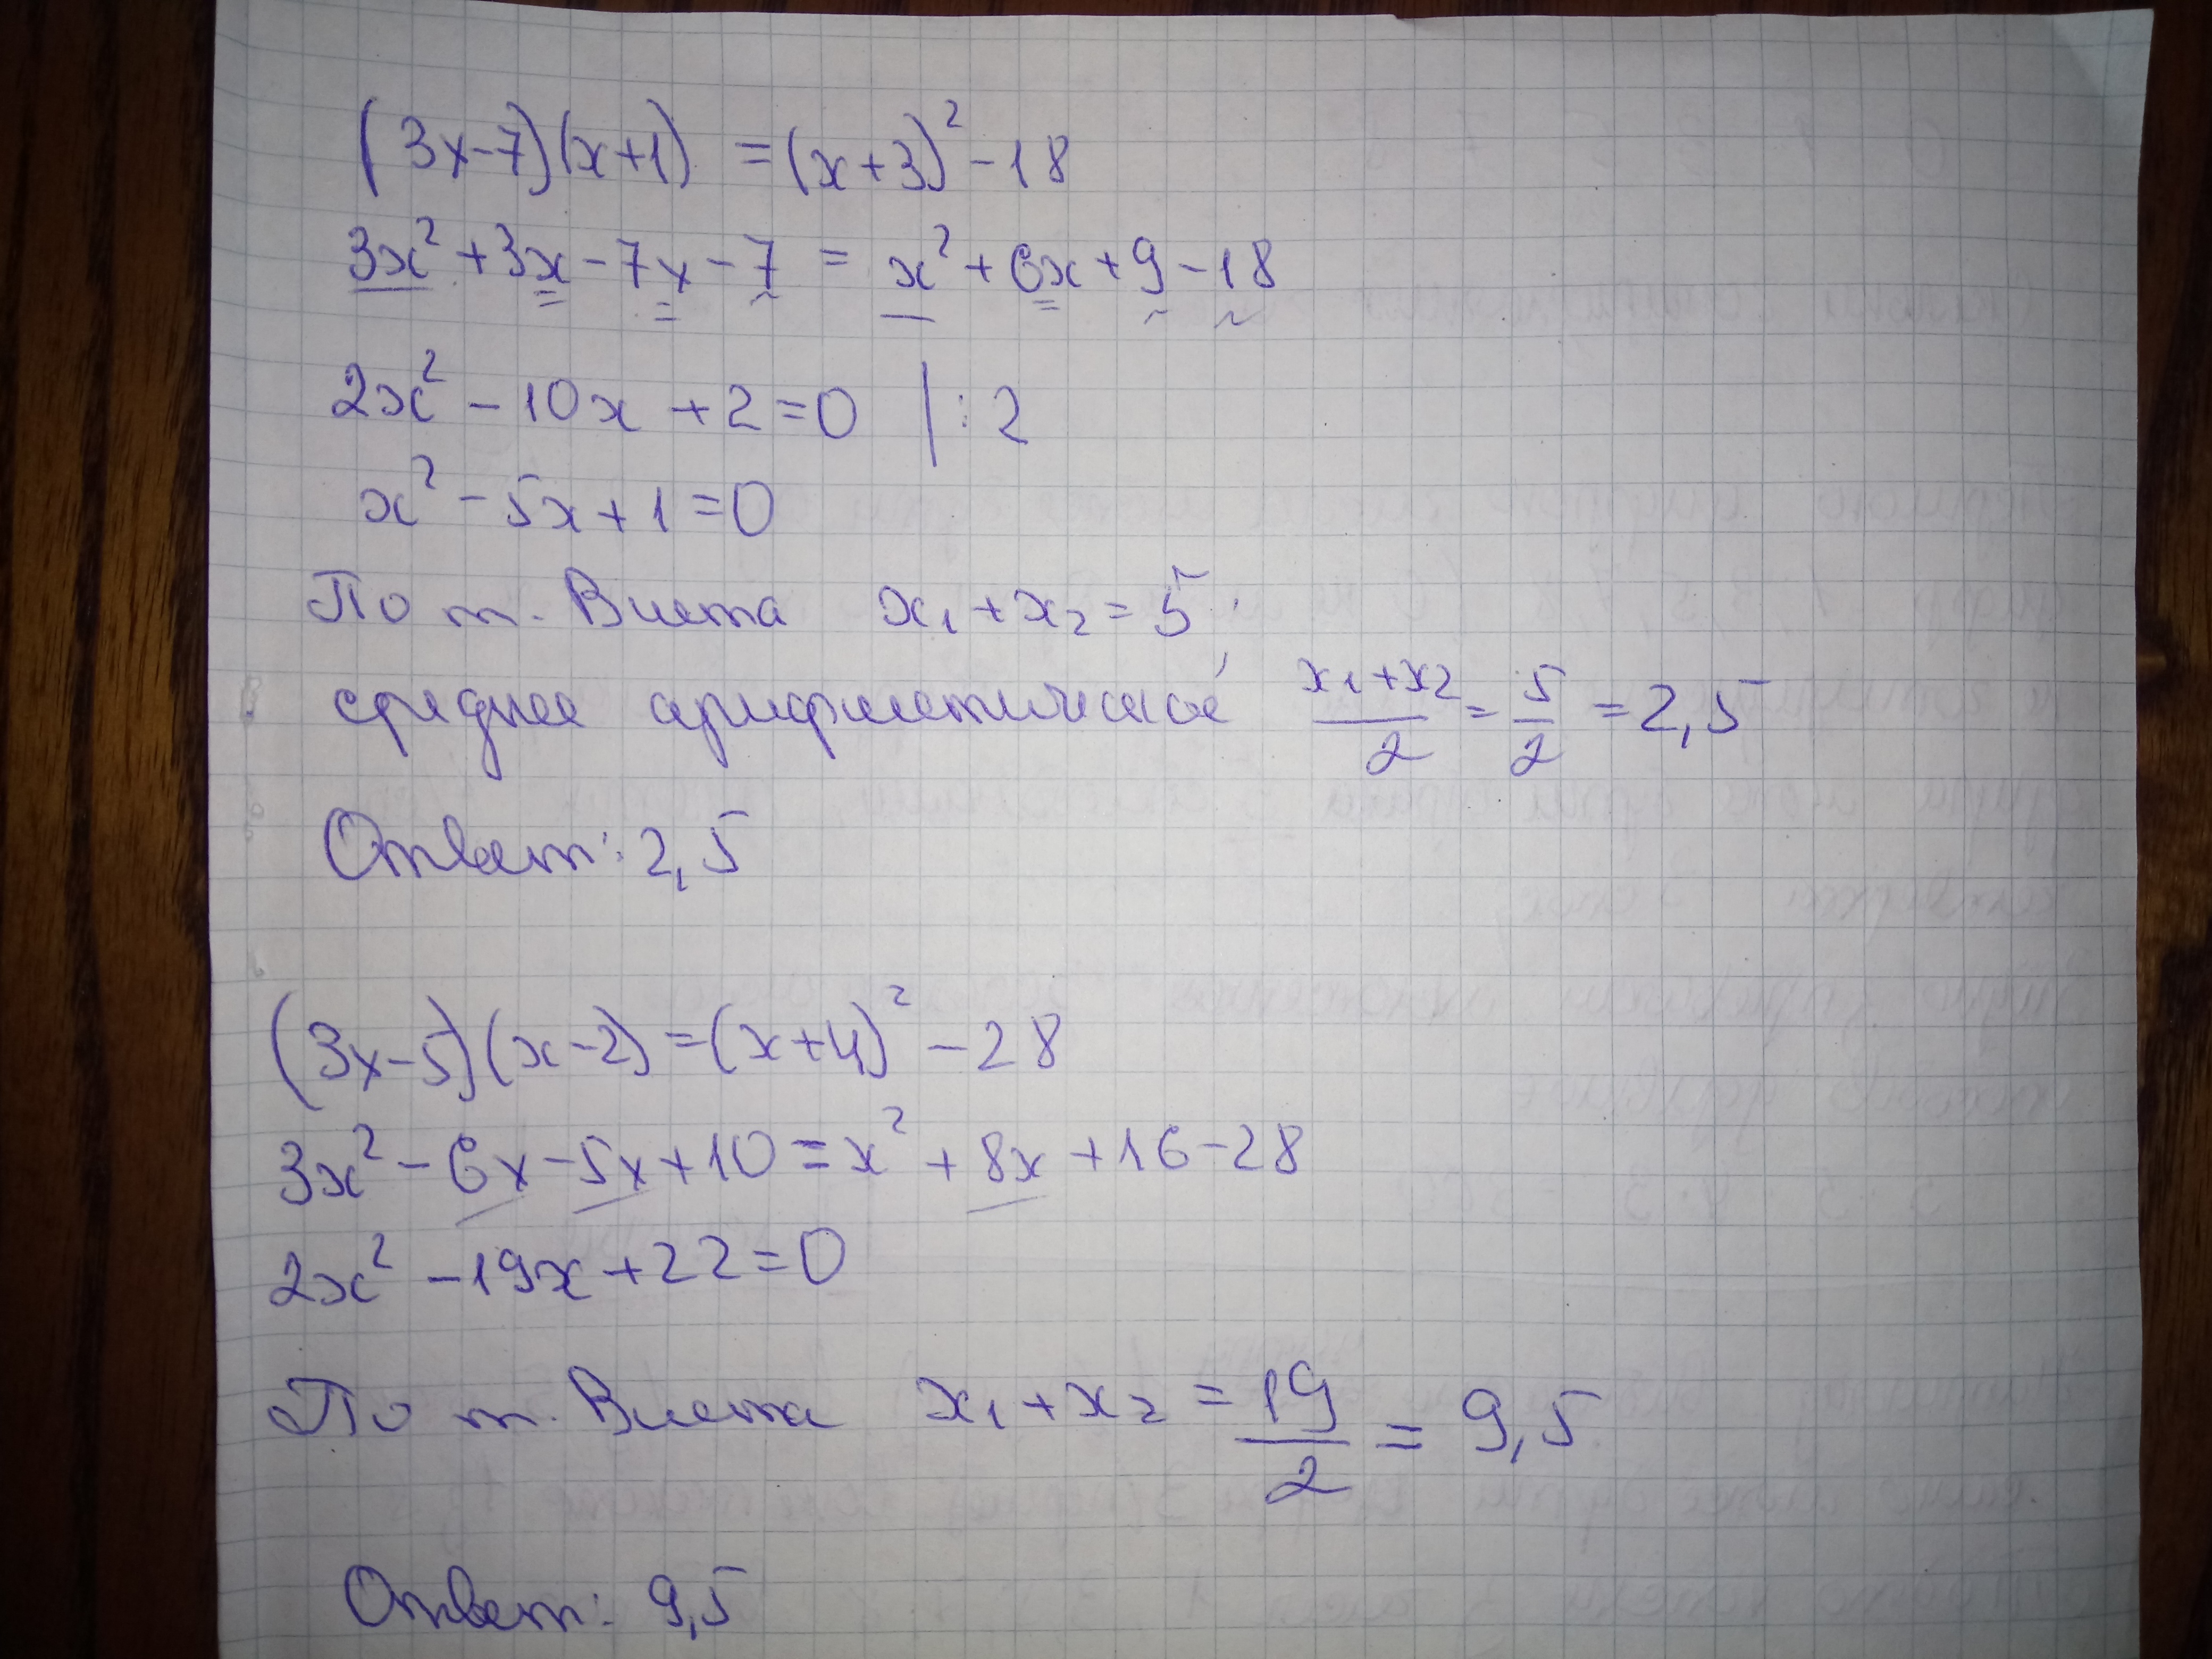 (3x-7)(x+1) = (x+3)² - 18
3x² + 3x - 7x - 7 = x² + 6x + 9 - 18
2x² - 10x + 2 = 0 | : 2
x² - 5x + 1 = 0
По т. Виета x₁ + x₂ = 5,
среднее арифметическое (x₁ + x₂)/2 = 5/2 = 2,5
Ответ: 2,5
(3x-5)(x-2) = (x+4)² - 28
3x² - 6x - 5x + 10 = x² + 8x + 16 - 28
2x² - 19x + 22 = 0
По т. Виета x₁ + x₂ = 19/2 = 9,5
Ответ: 9,5